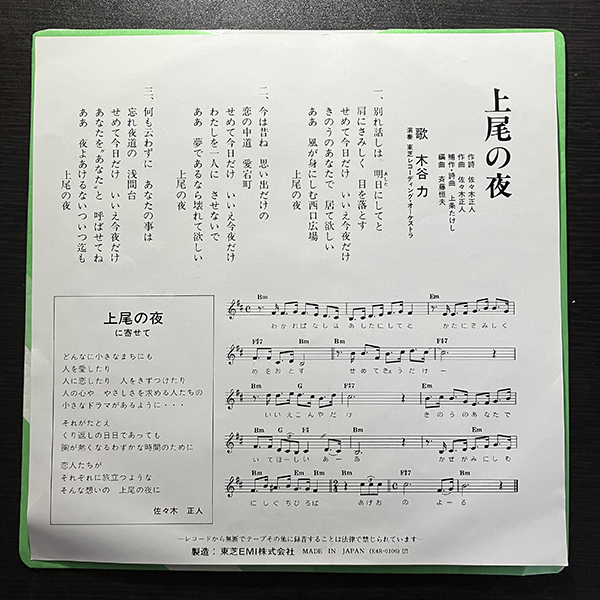 上尾の夜
作詩 佐々木正人
作曲 佐々木正人
補作・詩曲 上条たけし
編曲 斉藤恒夫
歌 木谷 力
演奏 東芝レコーディング・オーケストラ
一、別れ話しは 明日にしてと
あした
肩にさみしく 目を落とす
せめて今日だけ いいえ今夜だけ
きのうのあなたで 居て欲しい
ああ 風が身にしむ西口広場
上尾の夜
二、今は昔ね 思い出だけの
恋の中道 愛宕町
せめて今日だけ いいえ今夜だけ
わたしを一人に させないで
ああ 夢であるなら壊れて欲しい
上尾の夜
三、何も云わずに あなたの事は
忘れ夜道の 浅間台
せめて今日だけ いいえ今夜だけ
あなたを〝あなた〟と 呼ばせてね
ああ 夜よあけるないついつ迄も
上尾の夜
上尾の夜
に寄せて
どんなに小さなまちにも
人を愛したり
人に恋したり 人をきずつけたり
人の心や やさしさを求める人たちの
小さなドラマがあるように・・・
それがたとえ
くり返しの日日であっても
胸が熱くなるわずかな時間のために
恋人たちが
それぞれに旅立つような
そんな想いの 上尾の夜に
佐々木 正人
Bm Em
わかればなしは あしたにしてと かたにさみしく
F♯7 Bm Em Bm F♯7
めをおとす せめてきょうだけー
Bm G F♯7 Bm
いいえこんやだけ きのうのあなたで
Bm G F♯ Bm Em
いてほーしいあーあ かぜがみにしむ
Bm Em Bm F♯7 Bm
にしぐちひろば あげおのよーる
―レコードから無断でテープその他に録音することは法律で禁じられています―
製造:東芝EMI株式会社 MADE IN JAPAN (E4R-0106)